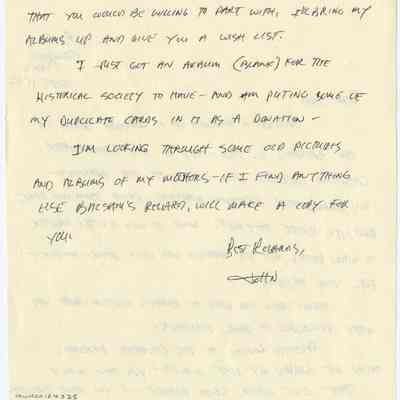 THAT YOU WOULD BE WILLING TO PART WITH, I'LL BRING MY
ALBUMS UP AND GIVE YOU A WISH LIST.
I JUST GOT AN ALBUM (BLANK) FOR THE
HISTORICAL SOCIETY TO HAVE - AND AM PUTING SOME OF
MY DUPLICATE CARDS IN IT AS A DONATION -
I'M LOOKING THROUGH SOME OLD PICTURES
AND ALBUMS OF MY MOTHERS - IF I FIND ANYTHING
ELSE BALSAMS RELATED, WILL MAKE A COPY FOR
YOU.
BEST REGARDS,
JOHN